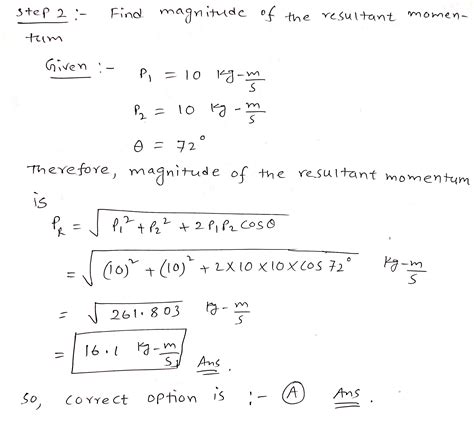 Step 2 :- Find magnitude of the resultant momen-
tum
Given :- P₁ = 10 kg-m/s
P₂ = 10 kg-m/s
θ = 72°
Therefore, magnitude of the resultant momentum
is
P_R = √(P₁² + P₂² + 2P₁P₂ cosθ)
= √((10)² + (10)² + 2×10×10×cos 72°) kg-m/s
= √261.803 kg-m/s
= 16.1 kg-m/s Ans.
So, correct option is :- (A) Ans.